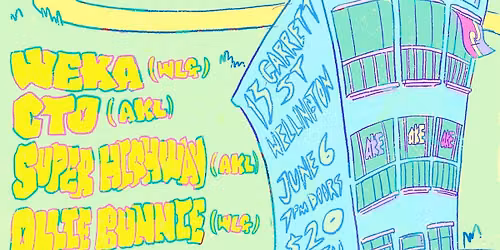 WEKA (WLG)
CTO (AKL)
SUPER HIGHWAY (AKL)
OLLIE BUNNIE (WLG)
13 GARRETT
ST
WELLINGTON
JUNE 6
7PM DOORS
$20